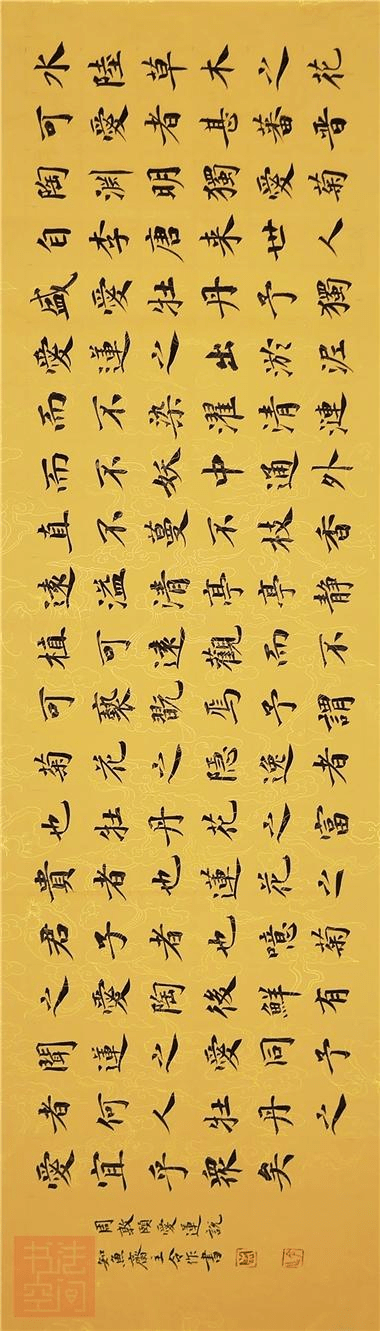 水陸草木之花
可愛者甚蕃晋
陶淵明獨愛菊
自李唐来世人
盛愛牡丹予獨
愛蓮之出淤泥
而不染濯清漣
而不妖中通外
直不蔓不枝香
遠溢清亭亭静
植可遠觀而不
可褻翫焉予謂
菊花之隱逸者
也牡丹花之富
貴者也蓮花之
君子者也噫菊
之愛陶後鮮有
聞蓮之愛同予
者何人牡丹之
愛宜乎衆矣
周敦頤愛蓮說
知魚齋主令作書
书法
空间